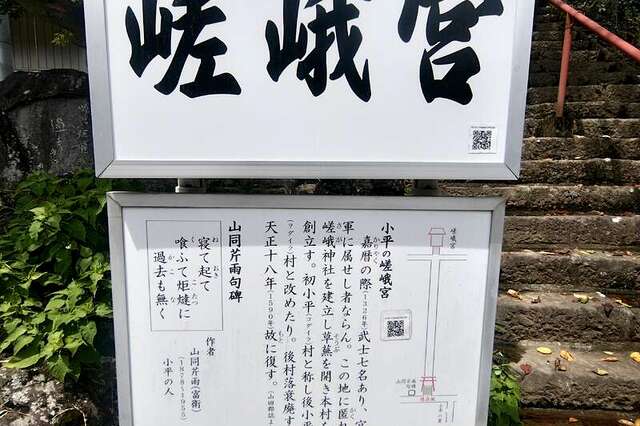 嵯峨宮
小平の嵯峨宮
嘉暦の際(1326年)武士七名あり、宮
軍に属せし者ならん。この地に匿れ
嵯峨神社を建立し草蕪を開き本村を
創立す。初小平(コダイラ)村と称し後小平
(コダイラ)村と改めたり。後村落衰廃す
天正十八年(1590年)故に復す。
山同芹雨句碑
寝て起て
喰ふて炬燵に
過去も無く
作者
山同芹雨(富衛)
(1878~1955)
小平の人
嵯峨宮
山同芹雨
句碑